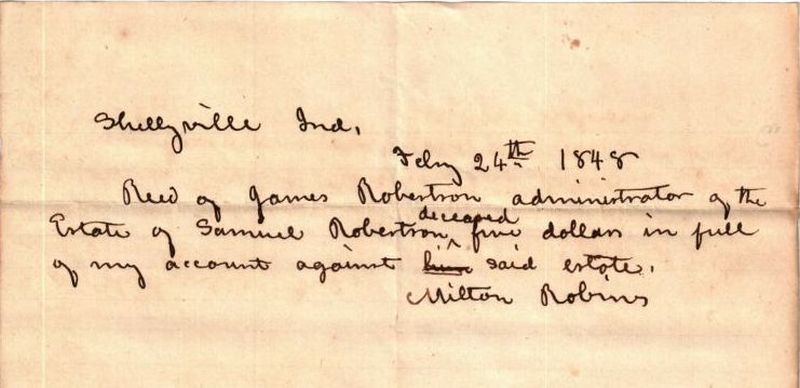 Shellyville Ind.
Feby 24th 1848
Recd of James Robertson administrator of the
Estate of Samuel Robertson deceased five dollars in full
of my account against him said estate.
Milton Robins